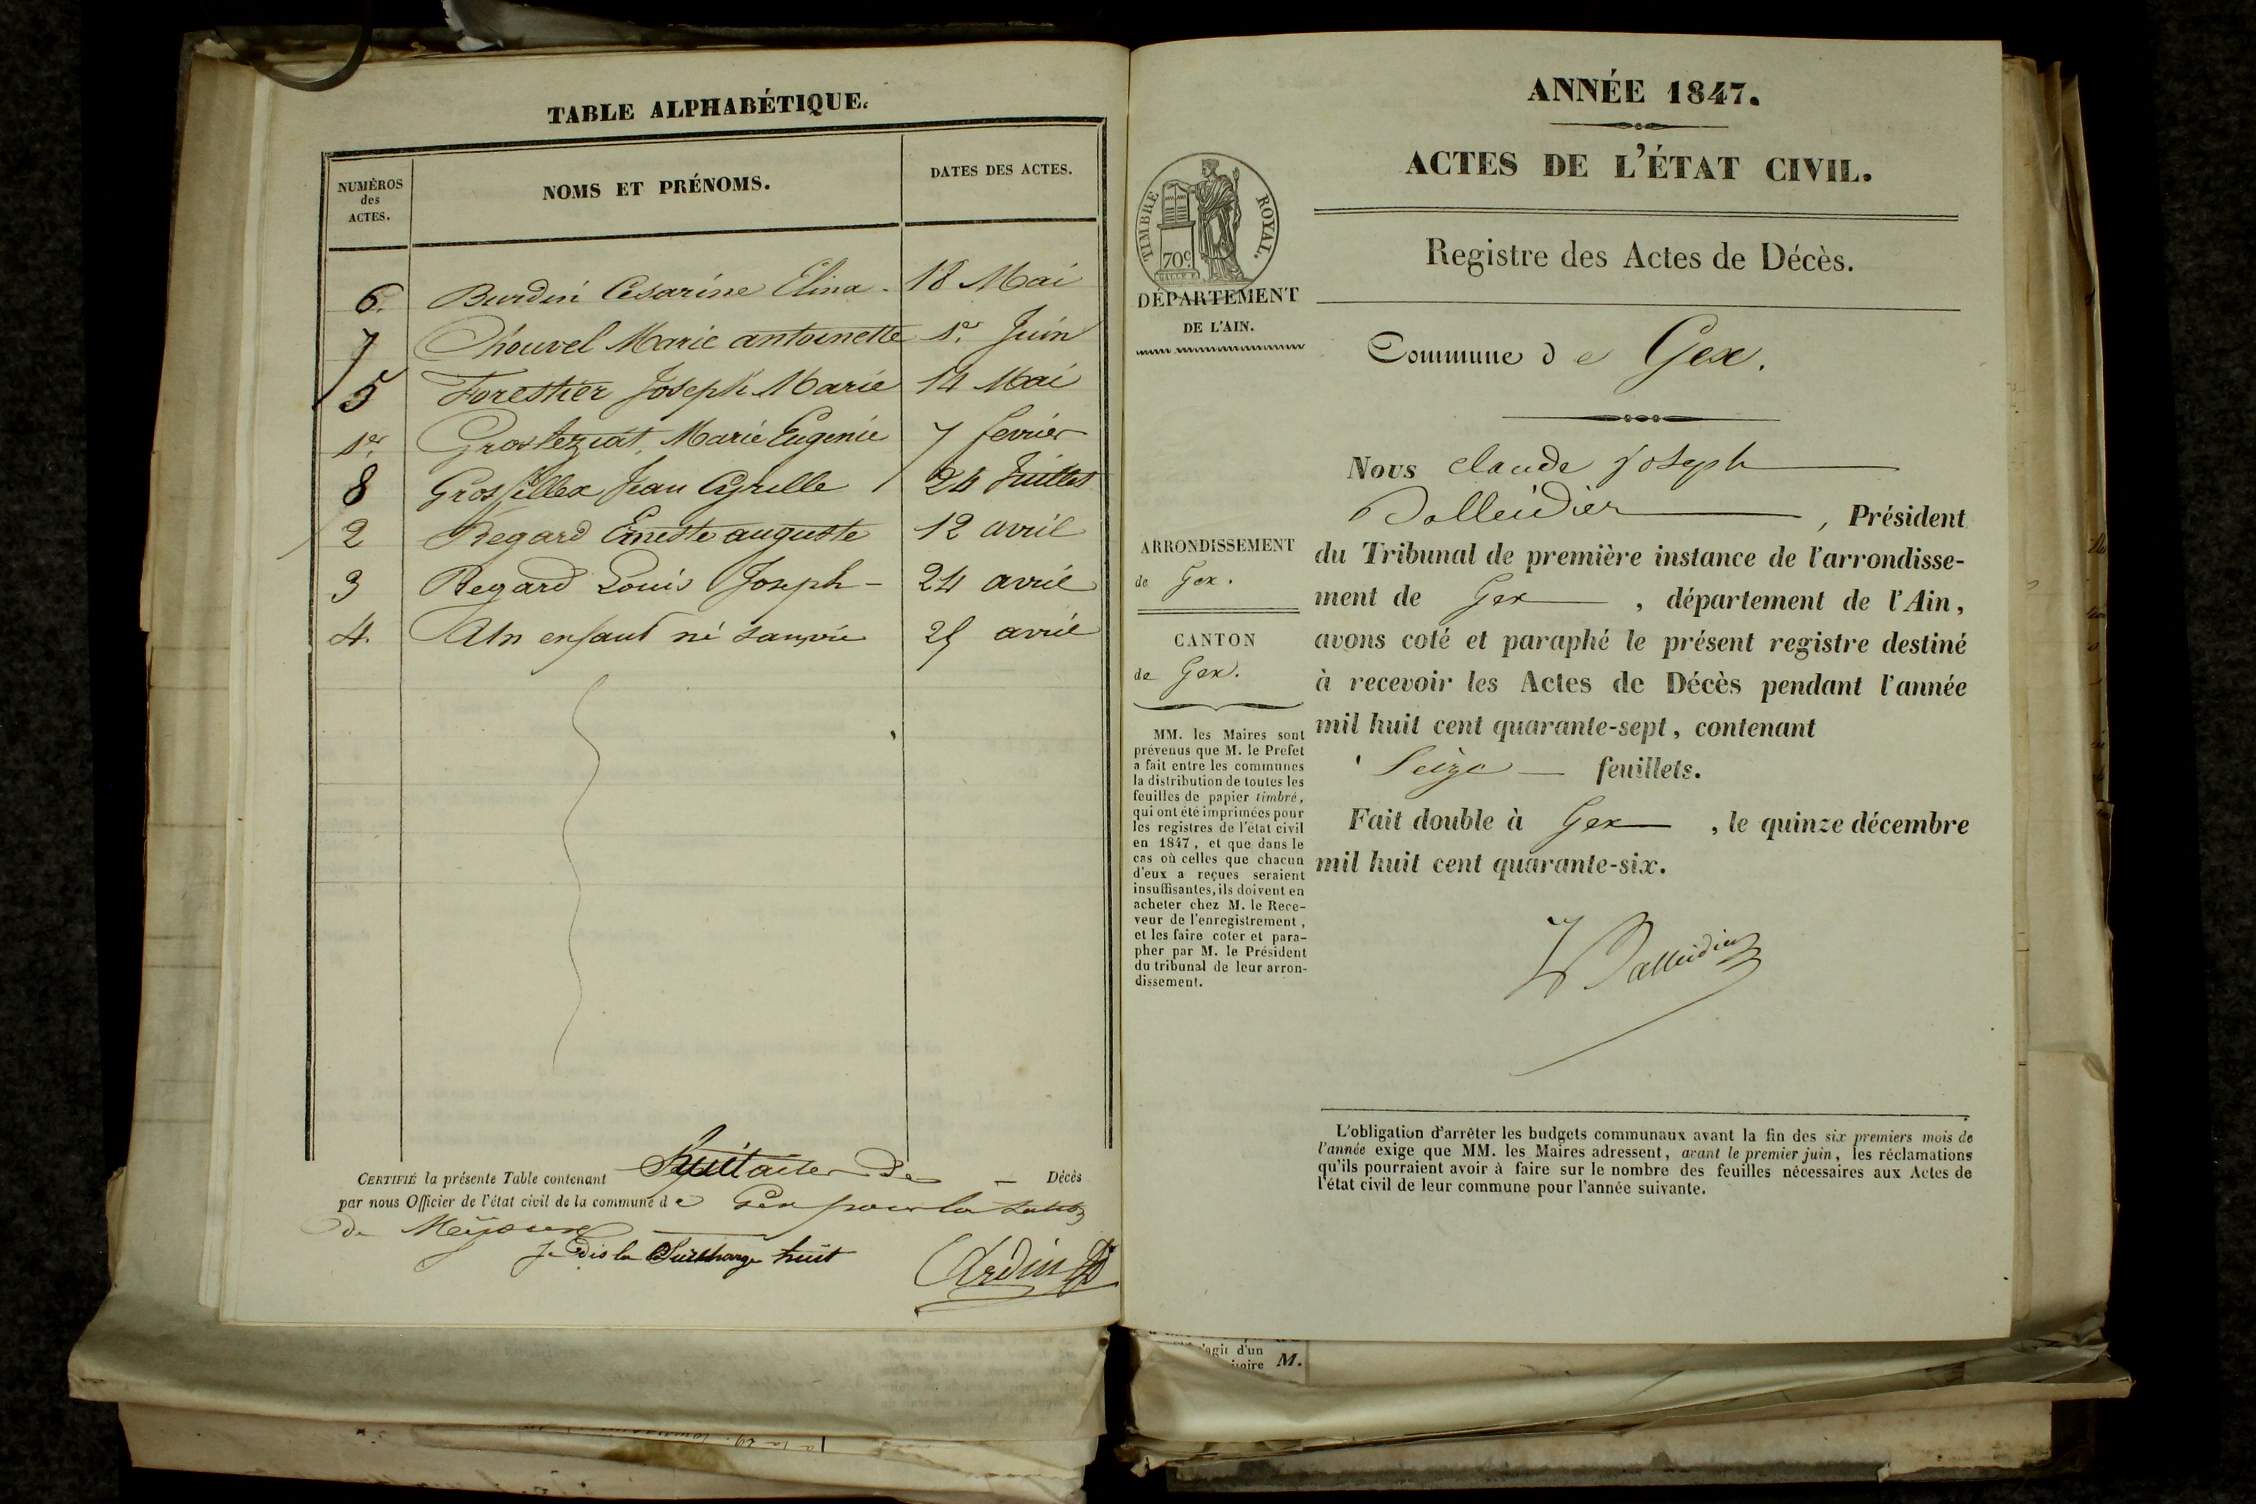 TABLE ALPHABÉTIQUE.
NUMÉROS des ACTES.
NOMS ET PRÉNOMS.
DATES DES ACTES.
6. Burdin Césarine Elina - 18 Mai
7 Chouvel Marie antoinette 1er Juin
5 Forestier Joseph Marie 14 Mai
1er Marie Eugénie 7 fevrier
8 Grosfillex Jean Cyrille 24 Juillet
2 Regard Erneste auguste 12 avril
3 Regard Louis Joseph - 24 avril
4. Un enfant né sans vie 25 avril
CERTIFIÉ la présente Table contenant huit actes de - Décès
par nous Officier de l'état civil de la commune de Gex pour la
de
Je dis la Surcharge huit
ANNÉE 1847.
ACTES DE L'ÉTAT CIVIL.
Registre des Actes de Décès.
TIMBRE ROYAL.
70c
DÉPARTEMENT
DE L'AIN.
Commune de Gex.
Nous Claude Joseph
Dalleidier, Président
du Tribunal de première instance de l'arrondisse-
ment de Gex, département de l'Ain,
avons coté et paraphé le présent registre destiné
à recevoir les Actes de Décès pendant l'année
mil huit cent quarante-sept, contenant
Seize feuillets.
Fait double à Gex, le quinze décembre
mil huit cent quarante-six.
Dalleidier
ARRONDISSEMENT
de Gex.
CANTON
de Gex.
MM. les Maires sont
prévenus que M. le Prefet
a fait entre les communes
la distribution de toutes les
feuilles de papier timbré,
qui ont été imprimées pour
les registres de l'état civil
en 1847, et que dans le
cas où celles que chacun
d'eux a reçues seraient
insuffisantes, ils doivent en
acheter chez M. le Rece-
veur de l'enregistrement,
et les faire coter et para-
pher par M. le Président
du tribunal de leur arron-
dissement.
L'obligation d'arrêter les budgets communaux avant la fin des six premiers mois de
l'année exige que MM. les Maires adressent, avant le premier juin, les réclamations
qu'ils pourraient avoir à faire sur le nombre des feuilles nécessaires aux Actes de
l'état civil de leur commune pour l'année suivante.
M.